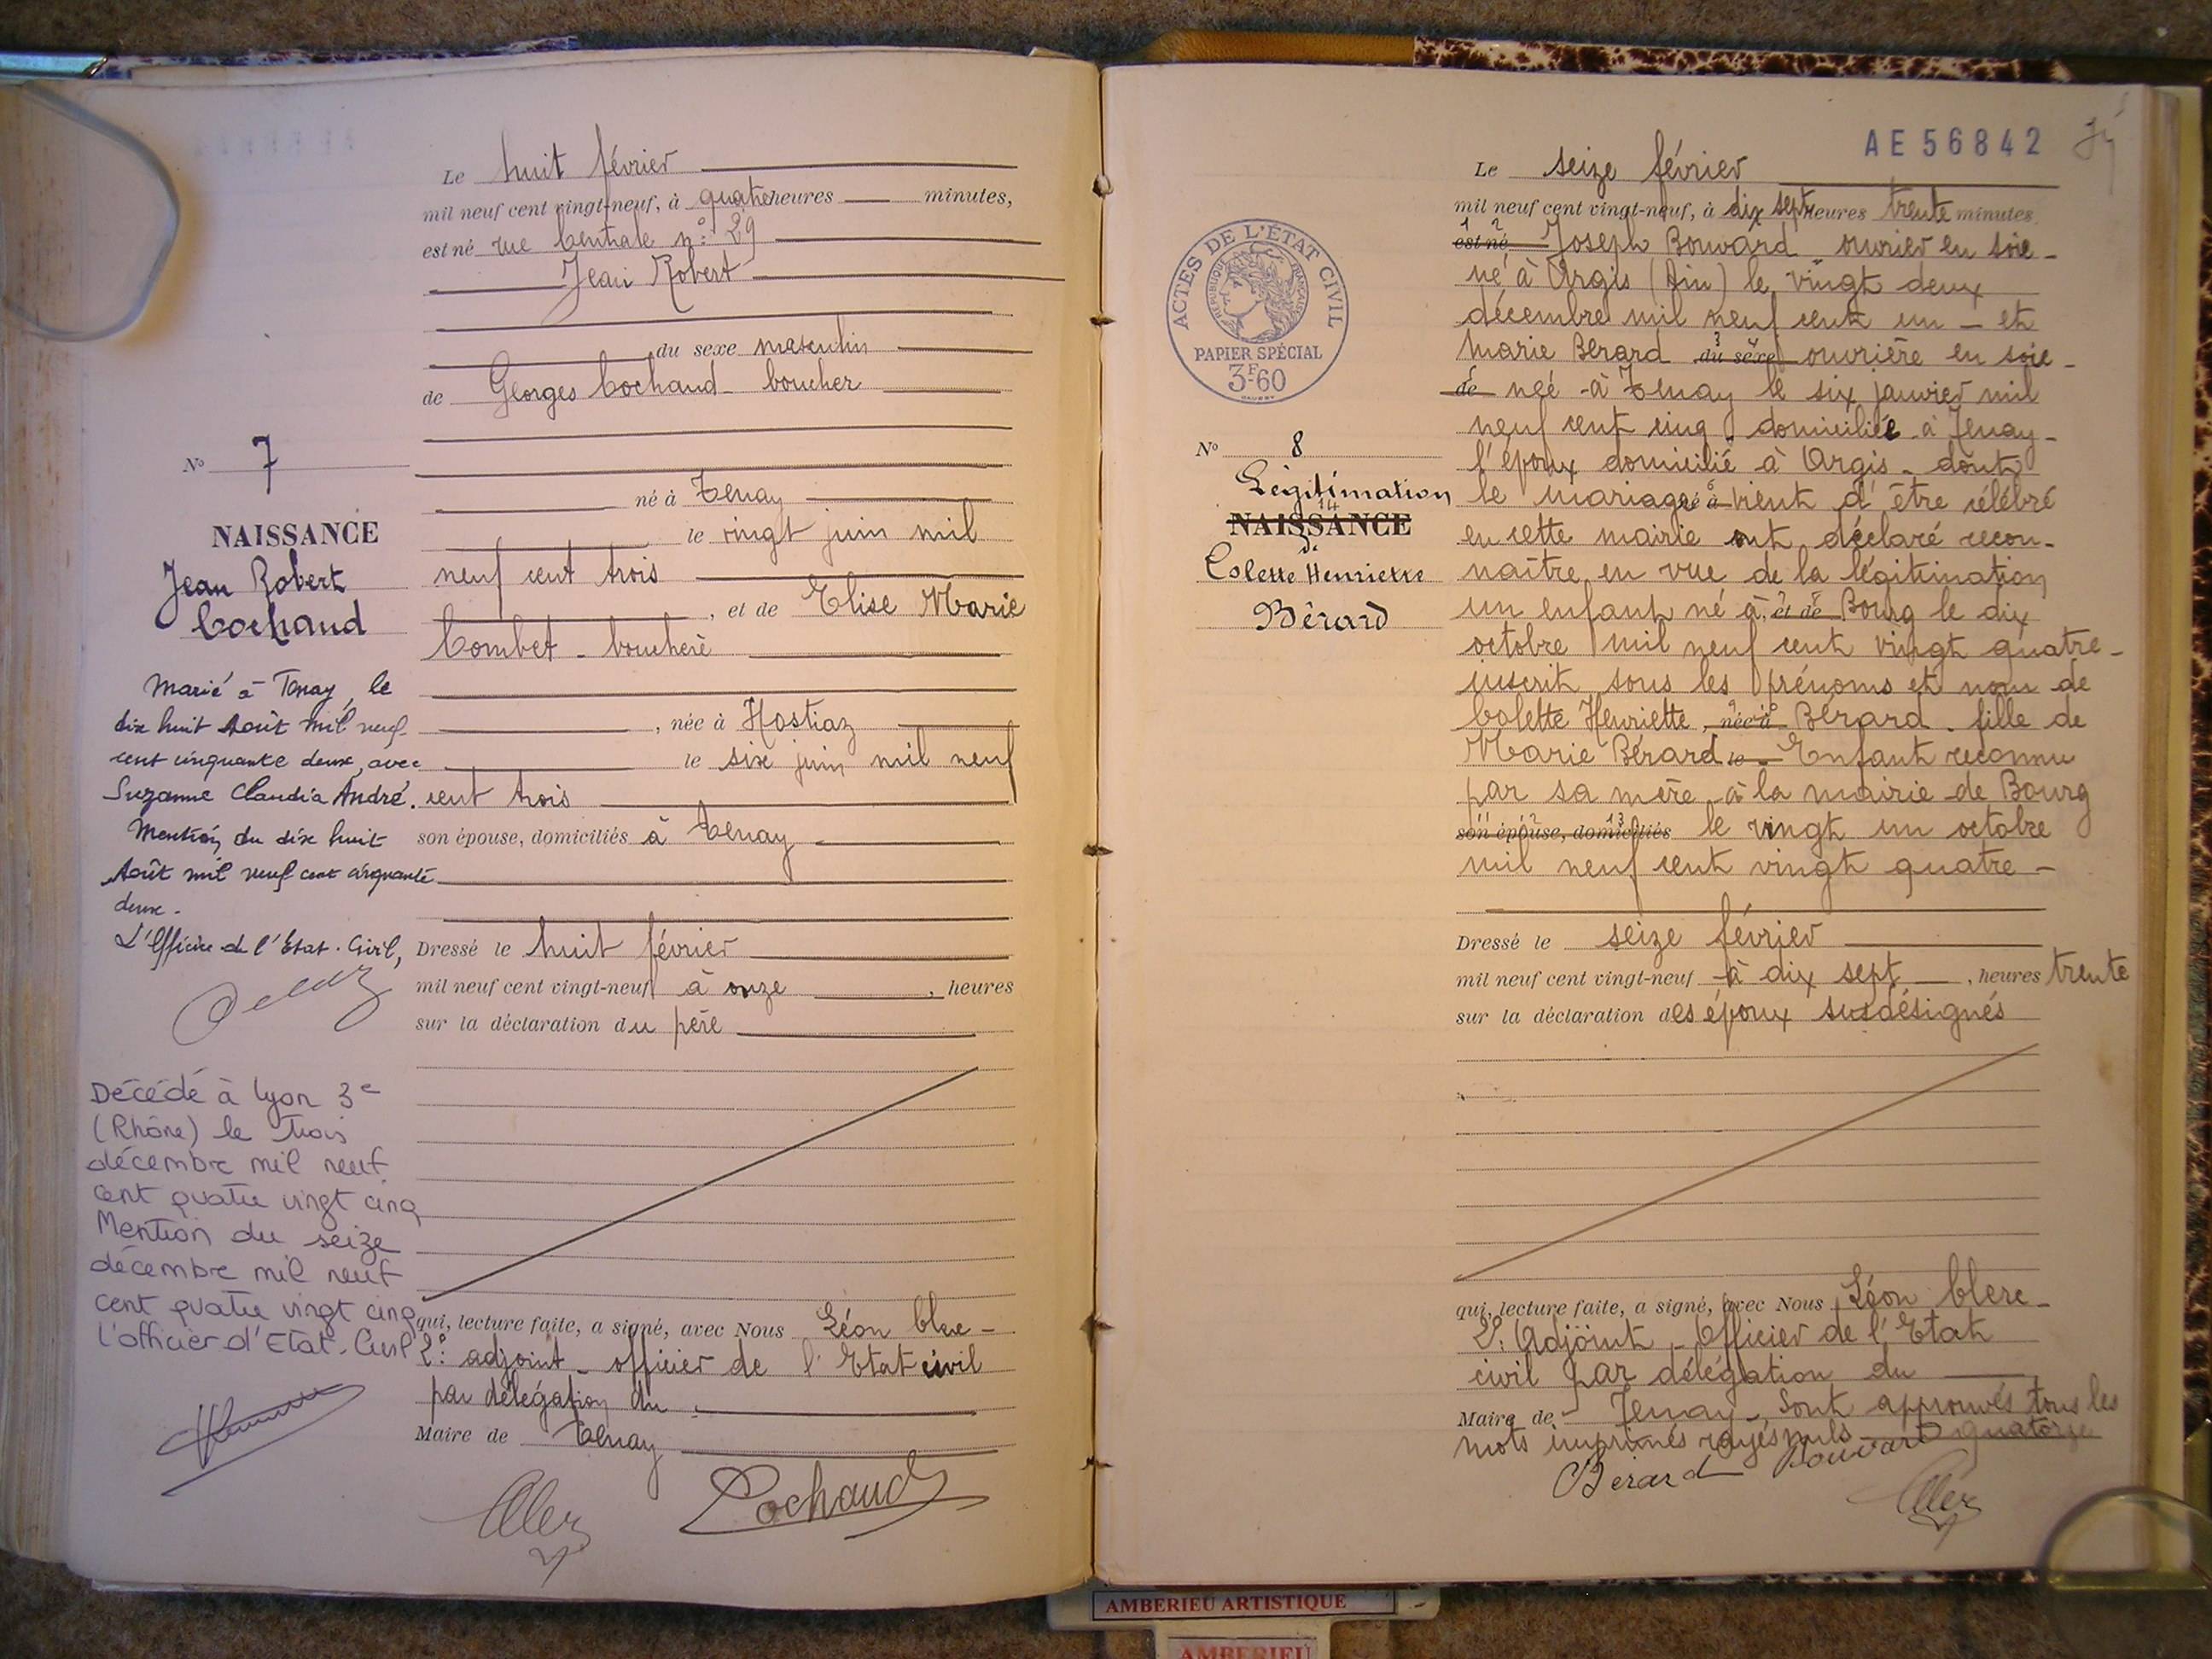 Le huit février
mil neuf cent vingt-neuf, à quatre heures minutes,
est né rue Centrale n° 29
Jean Robert
du sexe masculin
de Georges Cochaud - boucher
né à Tenay
le vingt juin mil
neuf cent trois
, et de Elise Marie
Combet - bouchère
, née à Hostiaz
le six juin mil neuf
cent trois
son épouse, domiciliés à Tenay
Dressé le huit février
mil neuf cent vingt-neuf à onze , heures
sur la déclaration du père
qui, lecture faite, a signé, avec Nous Léon Clerc -
2e adjoint - officier de l'Etat civil
par délégation du
Maire de Tenay
Cochaud
N° 7
NAISSANCE
Jean Robert
Cochaud
Marié à Tenay, le
dix huit Août mil neuf
cent cinquante deux, avec
Suzanne Claudia André.
Mention du dix huit
Août mil neuf cent cinquante
deux.
L'Officier de l'Etat-Civil,
Décédé à Lyon 3e
(Rhône) le trois
décembre mil neuf
cent quatre vingt cinq
Mention du seize
décembre mil neuf
cent quatre vingt cinq
L'officier d'Etat-Civil
AE 56842
ACTES DE L'ÉTAT CIVIL
RÉPUBLIQUE FRANÇAISE
PAPIER SPÉCIAL
3F60
N° 8
Légitimation
14
NAISSANCE
de
Colette Henriette
Bérard
Le seize février
mil neuf cent vingt-neuf, à dix sept heures trente minutes
1 2
est né Joseph Bouvard ouvrier en soie -
né à Argis (Ain) le vingt deux
décembre mil neuf cent un - et
Marie Bérard du sexe ouvrière en soie -
de née à Tenay le six janvier mil
neuf cent cinq domiciliée à Tenay -
l'époux domicilié à Argis - dont
le mariage né à vient d'être célébré
en cette mairie ont déclaré recon-
naître en vue de la légitimation
un enfant né à, et de Bourg le dix
octobre mil neuf cent vingt quatre -
inscrit sous les prénoms et nom de
Colette Henriette, née à Bérard - fille de
Marie Bérard le - Enfant reconnu
par sa mère à la mairie de Bourg
son épouse, domiciliés le vingt un octobre
mil neuf cent vingt quatre -
Dressé le seize février
mil neuf cent vingt-neuf à dix sept , heures trente
sur la déclaration des époux susdésignés
qui, lecture faite, a signé, avec Nous Léon Clerc -
2e Adjoint - Officier de l'Etat
civil par délégation du
Maire de Tenay - Sont approuvés tous les
mots imprimés rayés nuls quatorze
Bérard Bouvard
AMBERIEU ARTISTIQUE
AMBERIEU